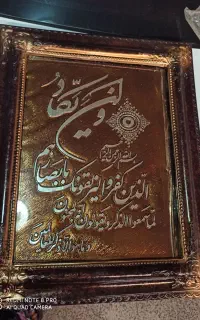 وان یکاد
بسم الله الرحمن الرحیم
الذین کفروا لیزلقونک بابصارهم
لما سمعوا الذکر و یقولون انه لمجنون
و ما هو الا ذکر للعالمین
REDMI NOTE 8 PRO
AI QUAD CAMERA